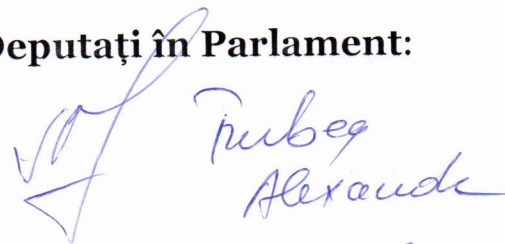 Deputați în Parlament:
Trubca
Alexandr